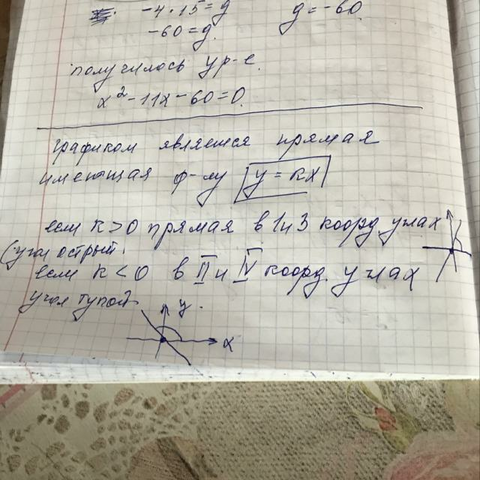 -4·15=g g=-60.
-60=g.
получилось ур-е.
x²-11x-60=0.
графиком является прямая
имеющая ф-лу y=kx
если k>0 прямая в 1 и 3 коорд углах
(угол острый.
если k<0 в II и IV коорд. углах
угол тупой.
y.
x